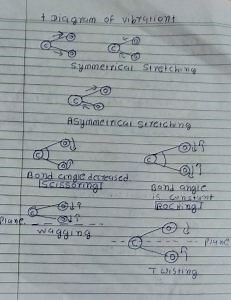 + Diagram of vibrations
Symmetrical Stretching
Asymmetrical Stretching
Bond angle decreased
Scissoring
Bond angle
is constant
Rocking
Plane
Wagging
Plane
Twisting